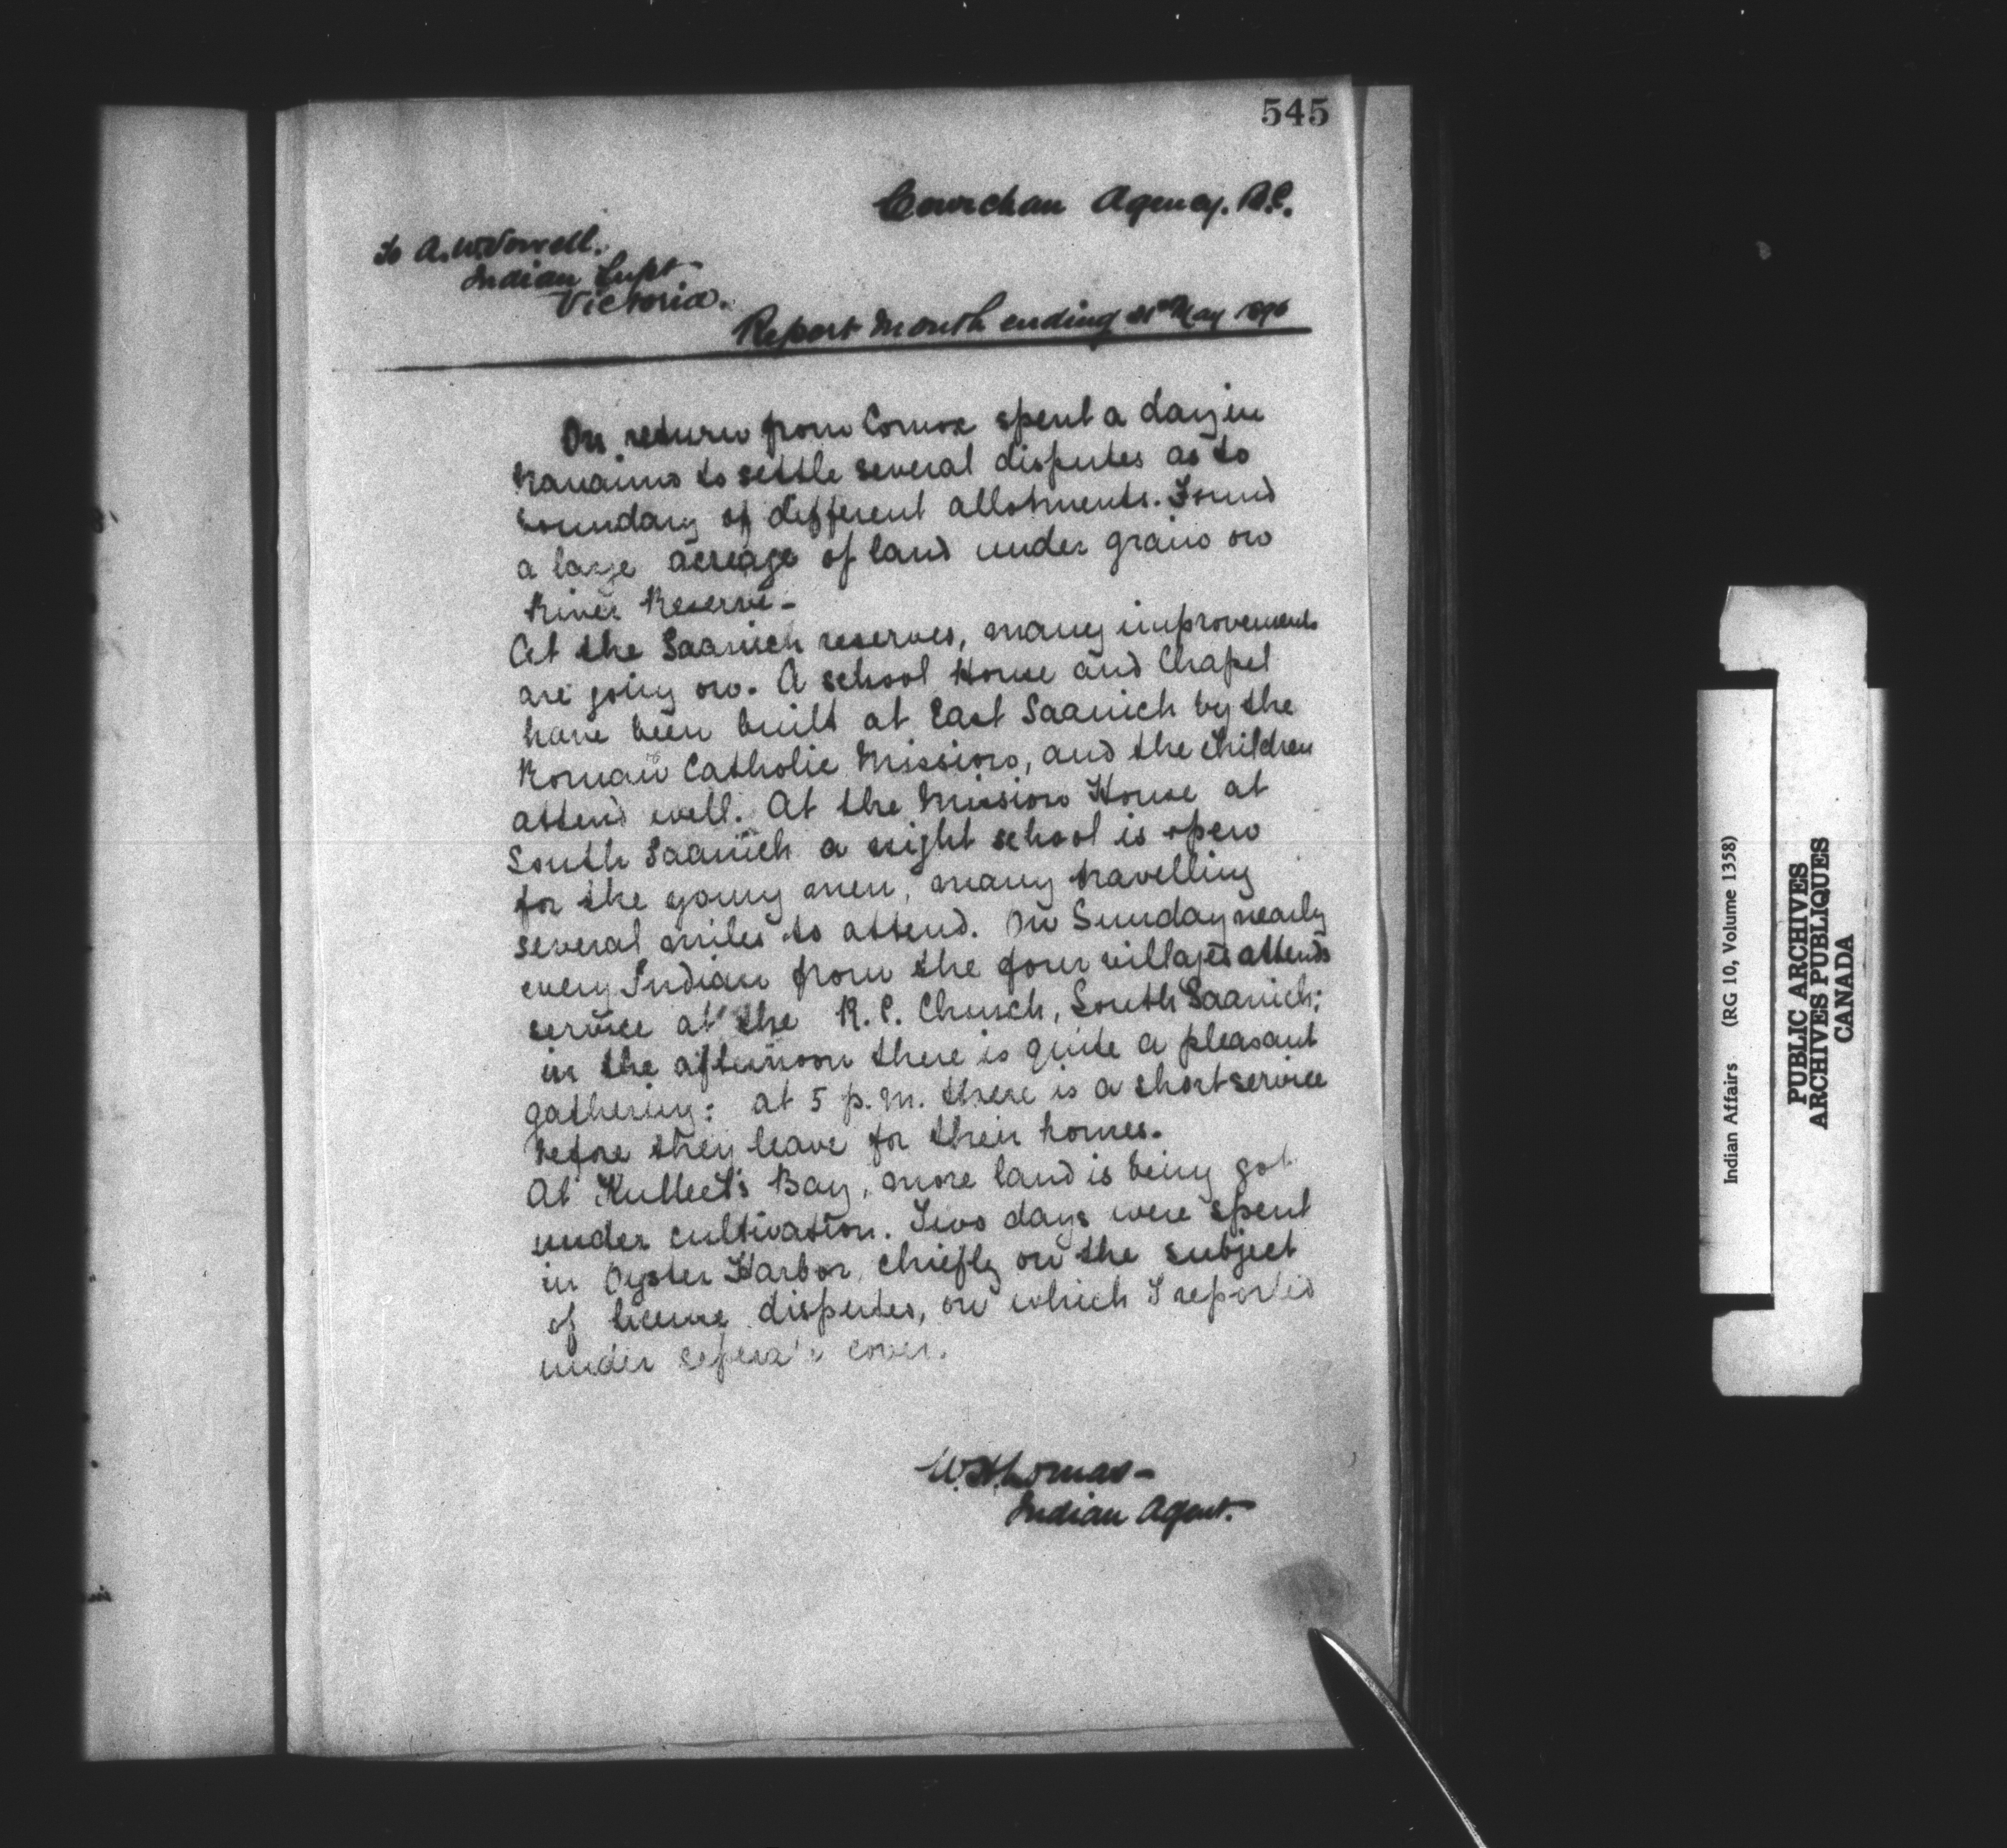 545
Cowichan Agency. B.C.
To A. W. Vowell.
Indian Supt-
Victoria.
Report Month ending 31st May 1896
On return from Comox spent a day in
Nanaimo to settle several disputes as to
boundary of different allotments. Found
a large acreage of land under grain on
River Reserve-
At the Saanich reserves, many improvements
are going on. A school House and Chapel
have been built at East Saanich by the
Roman Catholic Mission, and the children
attend well. At the Mission House at
South Saanich a night school is open
for the young men, many travelling
several miles to attend. On Sunday nearly
every Indian from the four villages attends
service at the R. C. Church, South Saanich;
in the afternoon there is quite a pleasant
gathering: at 5 p.m. there is a short service
before they leave for their homes.
At Kulleet's Bay, more land is being got
under cultivation. Two days were spent
in Oyster Harbor, chiefly on the subject
of disputes, on which I reported
under cover.
W. H. Lomas-
Indian Agent.
Indian Affairs (RG 10, Volume 1358)
PUBLIC ARCHIVES
ARCHIVES PUBLIQUES
CANADA